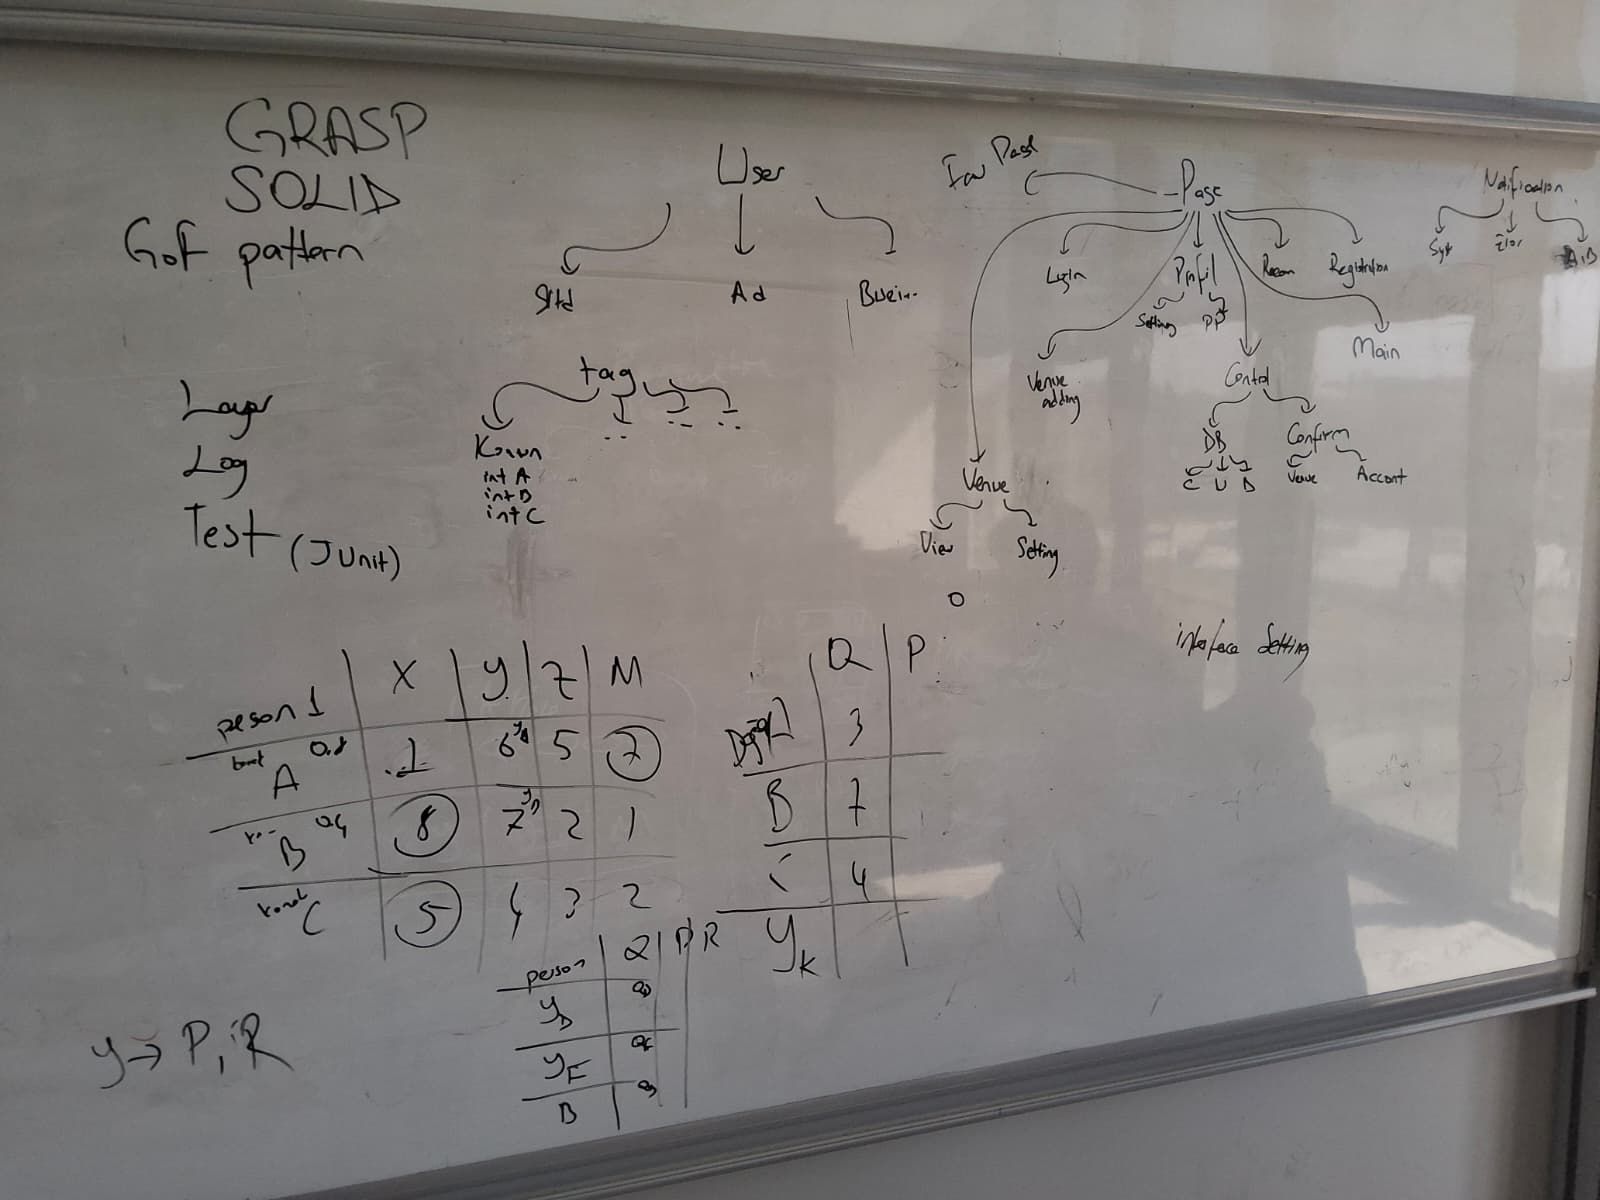 GRASP
SOLID
GoF pattern
Layer
Log
Test (JUnit)
User
Std Ad Busin..
tag
Konum
int A
int B
int C
Page
Fav Page
Login Profil Recom Registration
Setting PP
Main
Venue adding
Control
DB Confirm
C U D Venue Account
Venue
View Setting
Notification
Syst Error
interface Setting
person 1 X Y Z M
A 1 6 5 7
B 0,4 8 7 2 1
C 5 4 3 2
Q P
3
B 7
C 4
YK
person Q P R
YD
YF
B
y→ P, R